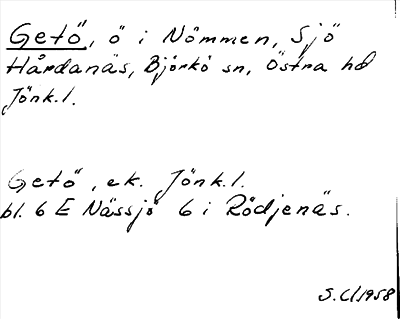 Getö, ö i Nömmen, Sjö
Hårdanäs, Björkö sn, Östra hd
Jönk.l.
Getö, ek. Jönk.l.
bl. 6 E Nässjö 6 i Rödjenäs.
S.Cl 1958